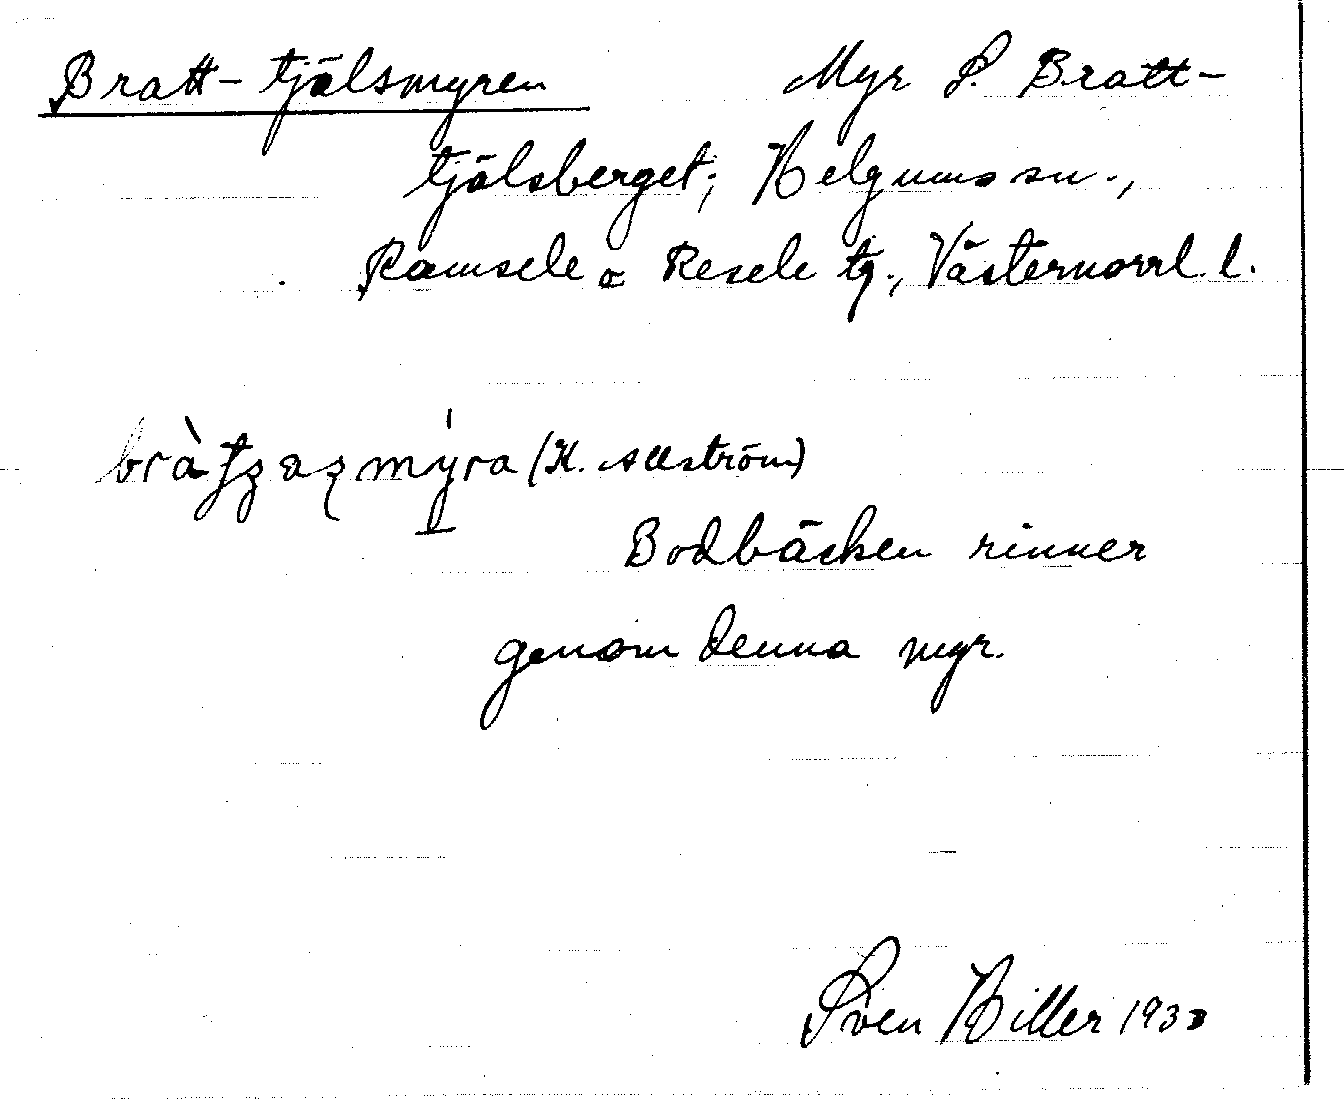 Bratt-tjälsmyren Myr S. Bratt-
tjälsberget; Helgums sn.,
Ramsele o Resele tg., Västernorrl. l.
(H. Allström)
Bodbäcken rinner
genom denna myr.
Sven Hiller 1933